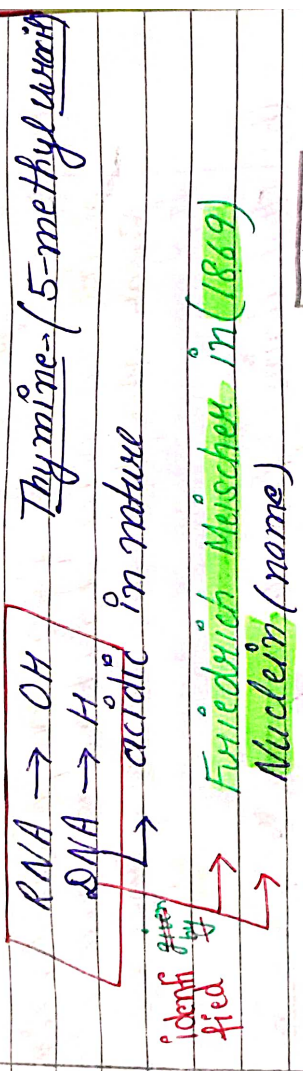 RNA → OH Thymine-(5-methyl uracil)
DNA → H
↳ acidic in nature
identi given
fied by → Friedrich Meischer in (1869)
→ Nuclein (name)